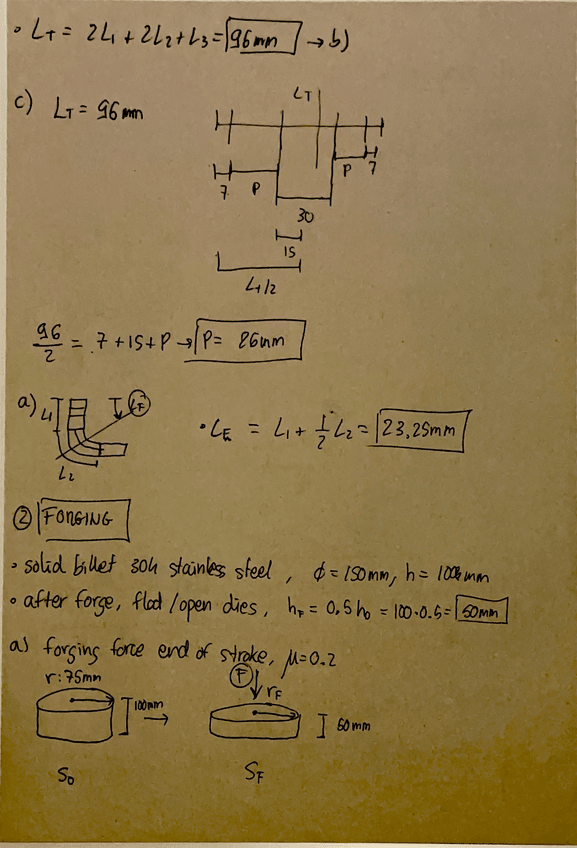 • LT = 2L1 + 2L2 + L3 = 96mm → b)
c) LT = 96mm
LT
7 P 30 P 7
15
LT/2
96/2 = 7 + 15 + P → P = 26mm
a) L1 LE
L2
• LE = L1 + 1/2 L2 = 23,25mm
② FORGING
• solid billet 304 stainless steel, ϕ = 150mm, h = 100mm
• after forge, flad/open dies, hF = 0.5 h0 = 100·0.5 = 50mm
a) forging force end of stroke, μ=0.2
r:75mm F rF
100mm → 50mm
S0 SF